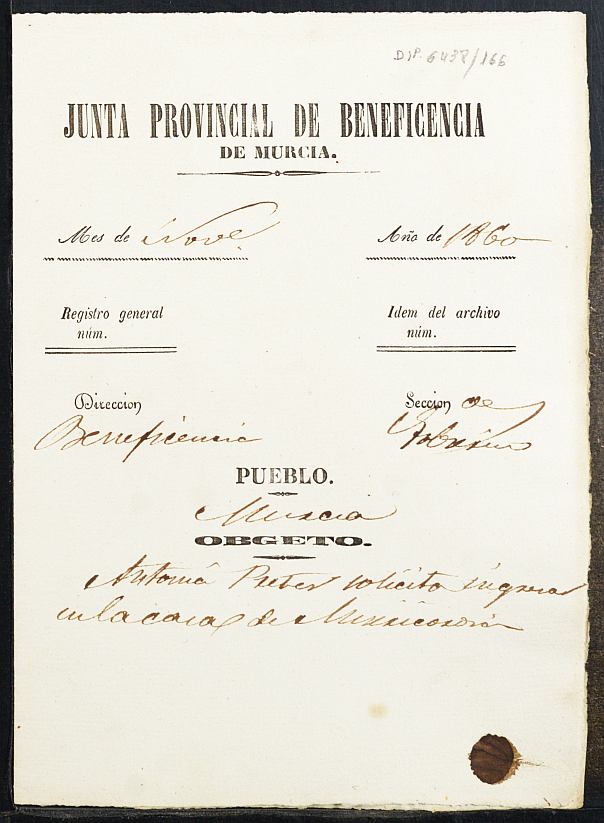 DIP. 6438/166
JUNTA PROVINCIAL DE BENEFICENCIA
DE MURCIA.
Mes de Nove
Año de 1860
Registro general
núm.
Idem del archivo
núm.
Direccion
Beneficencia
Seccion de
Gobierno
PUEBLO.
Murcia
OBGETO.
Antonia solicita ingresar
en la casa de Misericordia